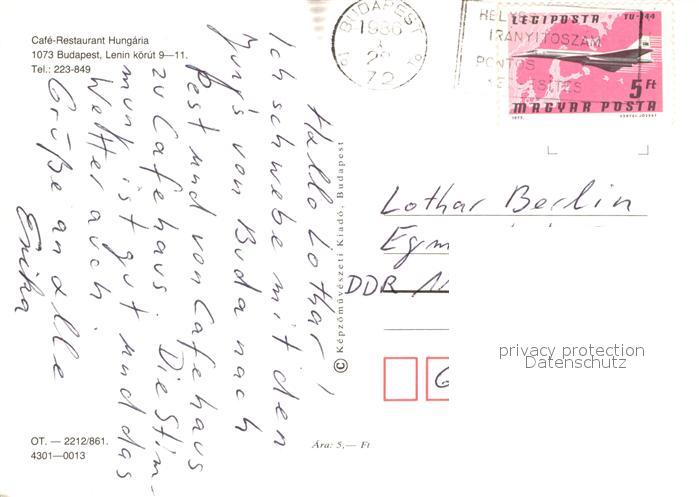 Café-Restaurant Hungária
1073 Budapest, Lenin körút 9—11.
Tel.: 223-849
Hallo Lothar!
Ich schwebe mit den
Jung's von Buda nach
Pest und von Cafehaus
zu Cafehaus. Die Stim-
mung ist gut und das
Wetter auch.
Grüße an alle
Erika
OT. — 2212/861.
4301—0013
Ára: 5,— Ft
© Képzőművészeti Kiadó, Budapest
BUDAPEST
1986
72
HELYES
IRÁNYÍTÓSZÁM
PONTOS
LÉGIPOSTA TU-144
5 Ft
MAGYAR POSTA
Lothar Berlin
Egm
DDR 11
6
privacy protection
Datenschutz